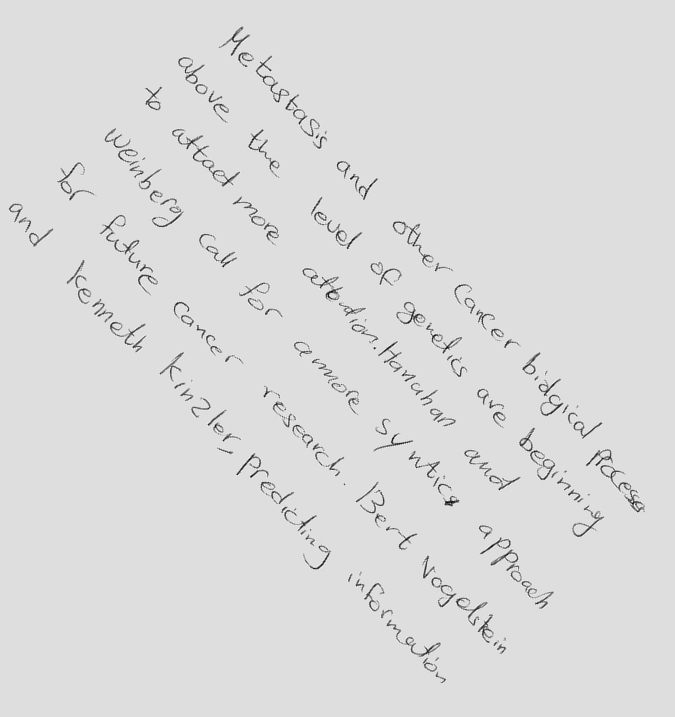 Metastasis and other cancer bidgical Process
above the level of genetics are beginning
to attact more attention. Hanahan and
Weinberg call for a more syntics approach
for future cancer research. Bert Vogelstein
and Kenneth Kinzler_ Predicting information